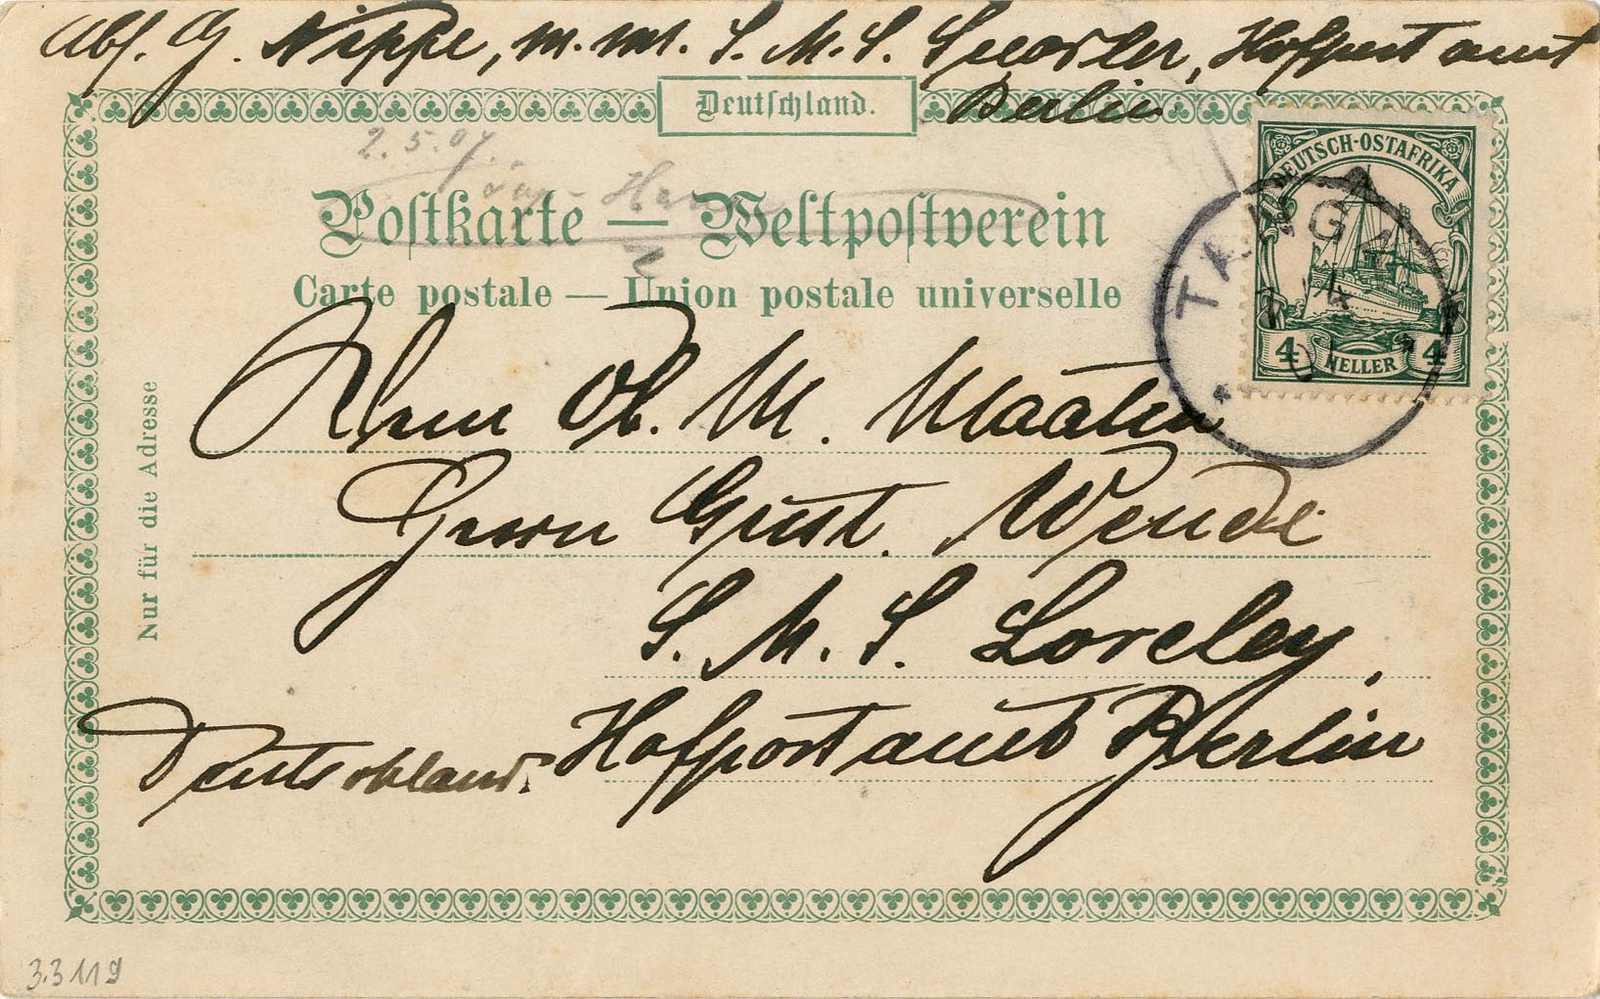 Abs. G. Nippe, m. mt. S. M. S. Seeadler, Hofpostamt
Berlin
Deutschland.
2.5.07.
Postkarte — Weltpostverein
Carte postale — Union postale universelle
DEUTSCH-OSTAFRIKA
4 HELLER 4
TANGA
Nur für die Adresse
Ob. M. Maaten
Herrn Gust. Wende
S. M. S. Loreley,
Hofpostamt Berlin
Deutschland.
3.3119